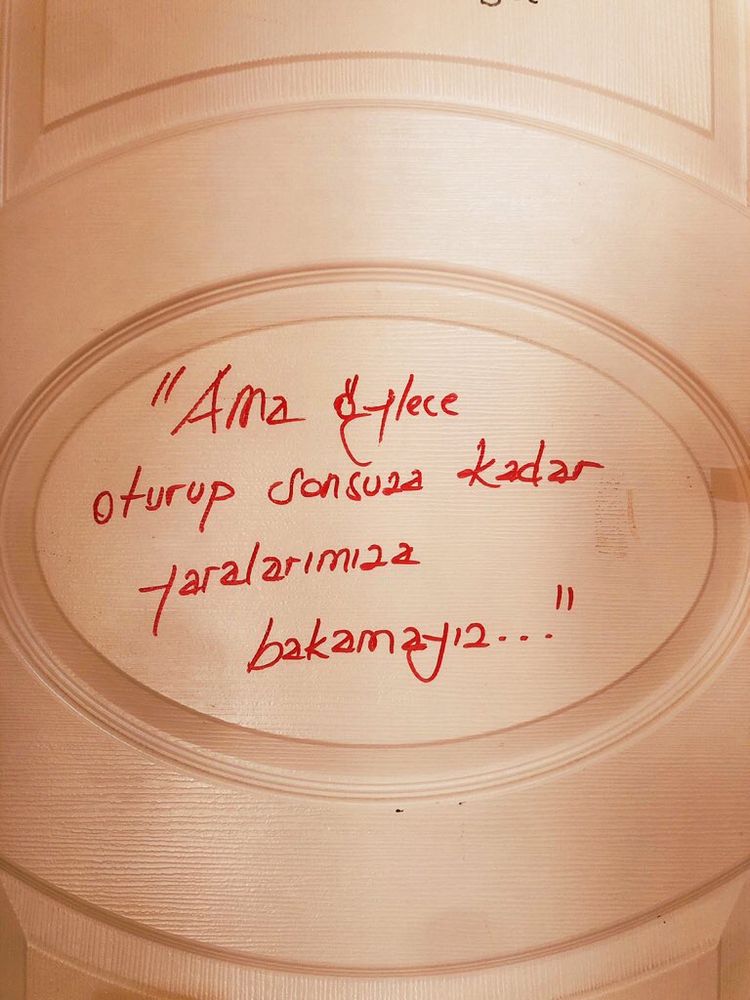 "Ama öylece
oturup sonsuza kadar
yaralarımıza
bakamayız..."